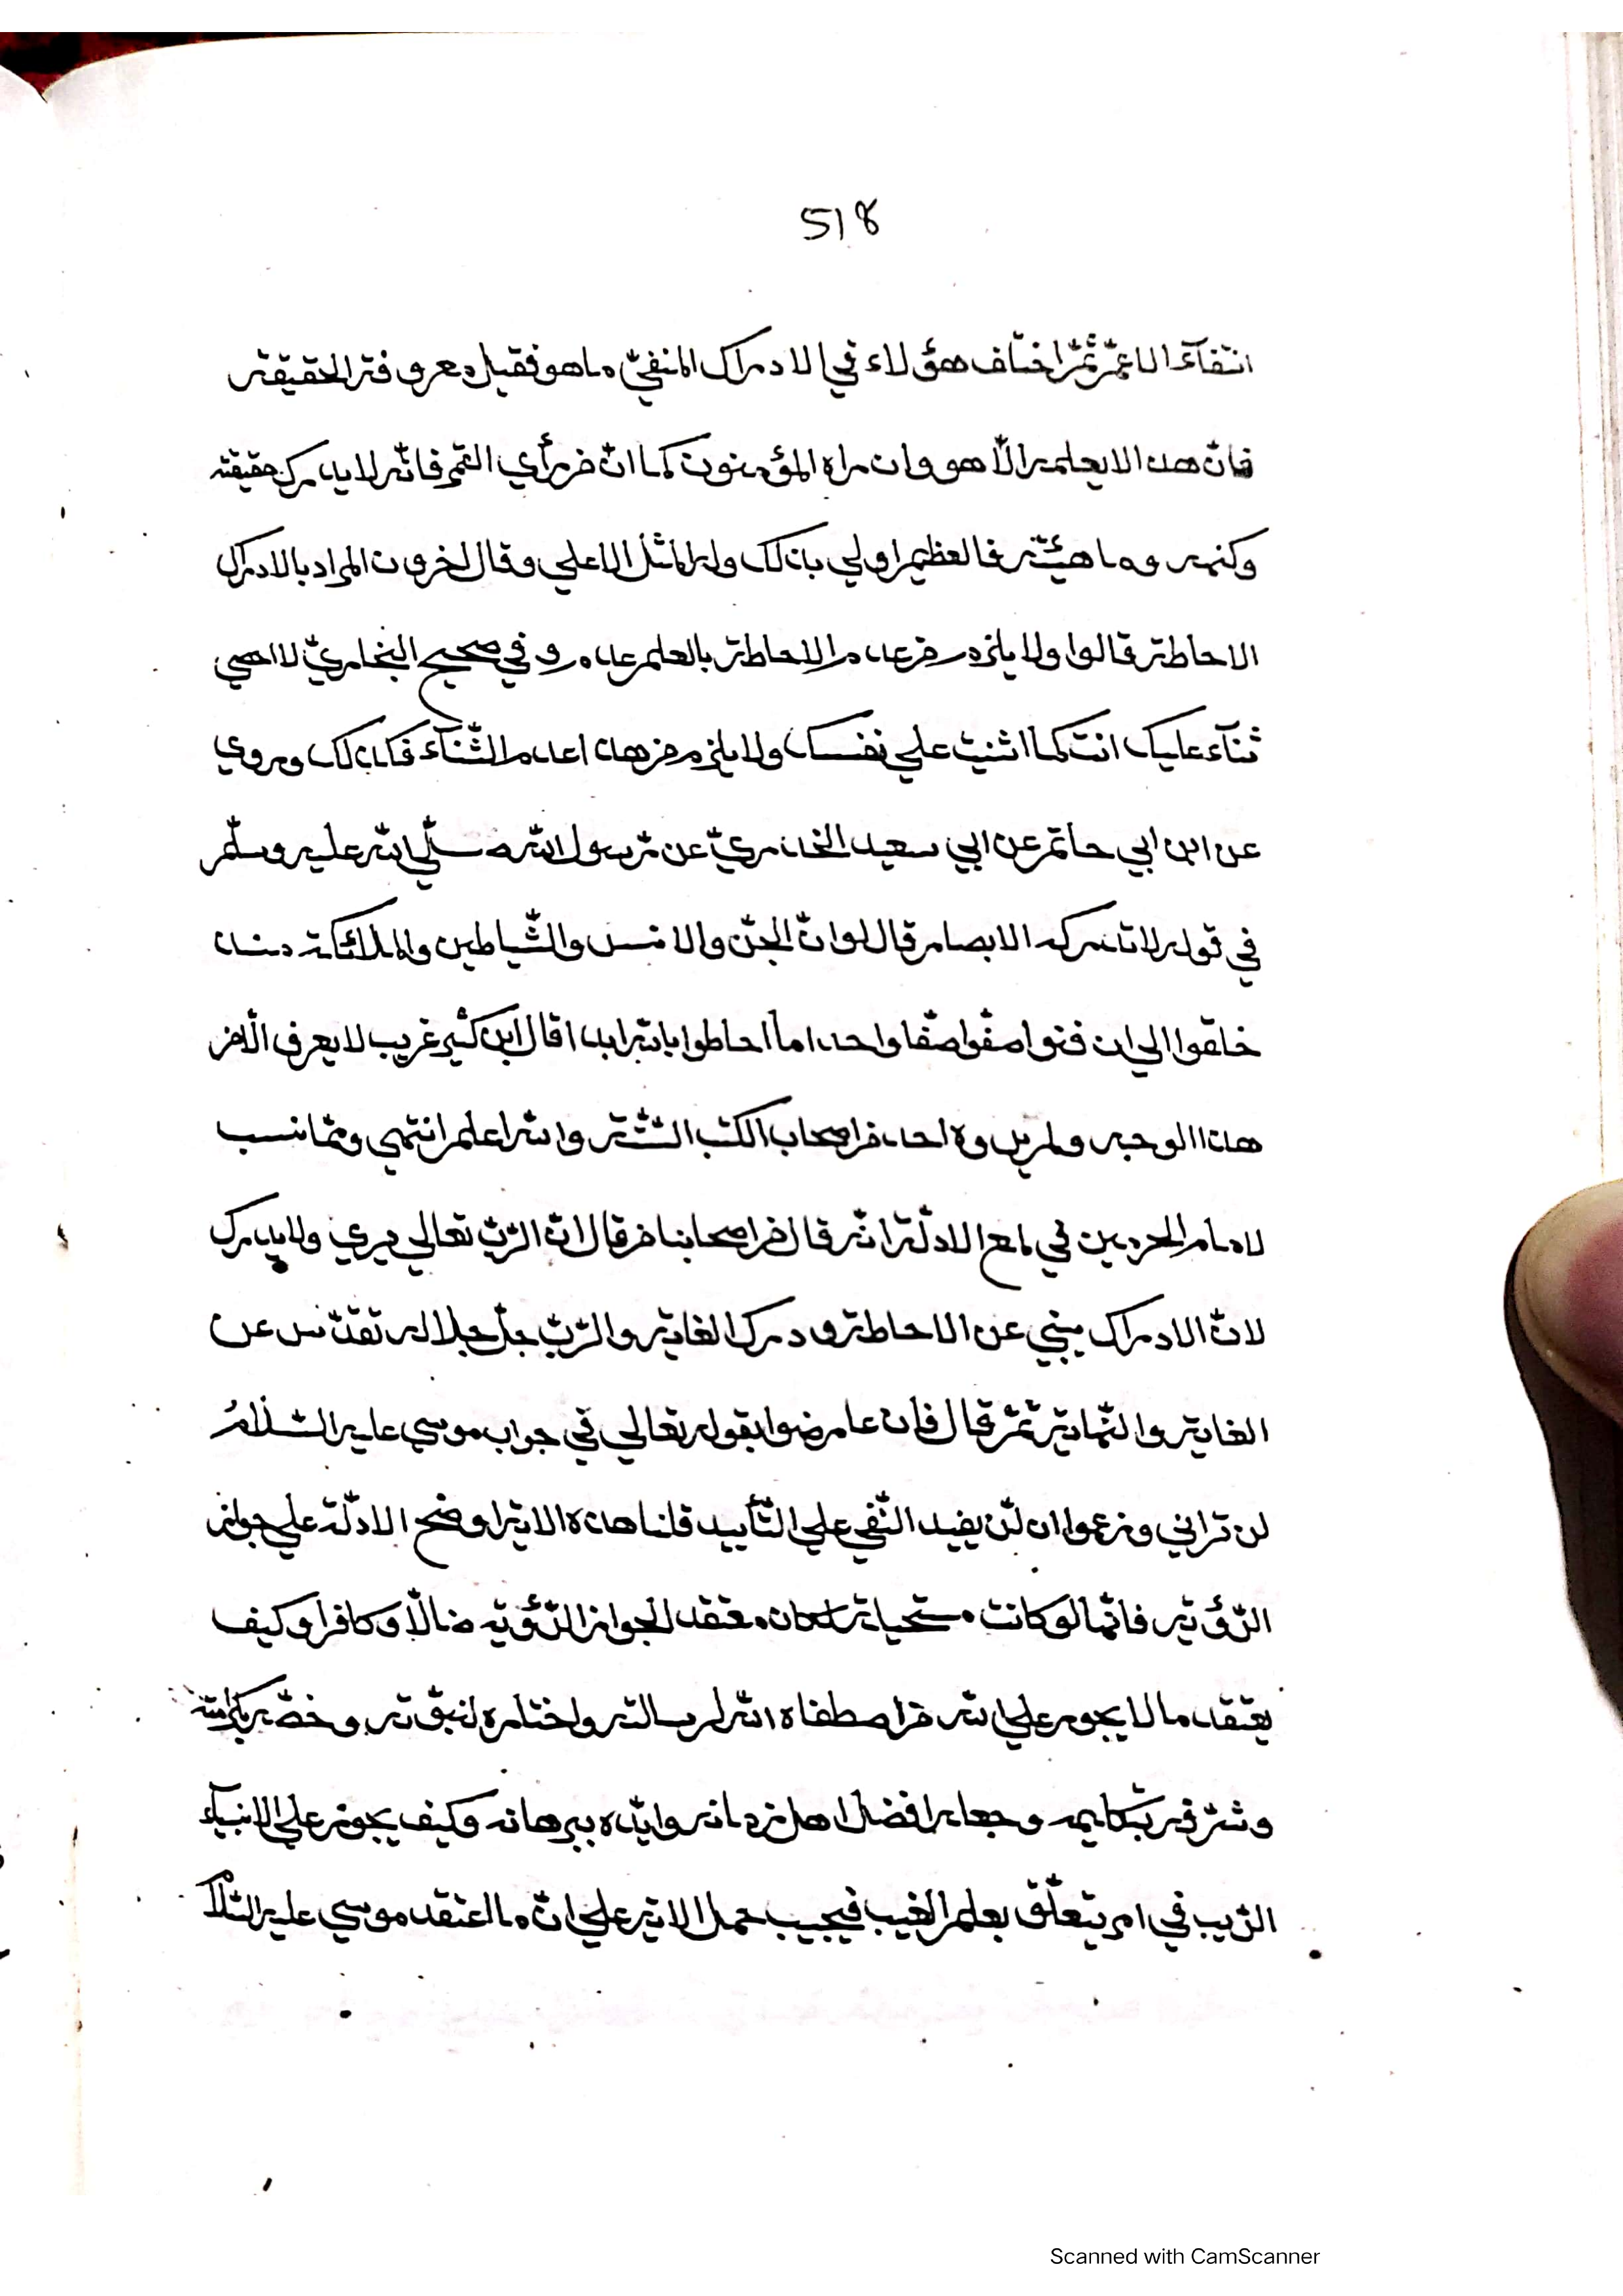 518
انتفآء الاعمّ ثمّ اختلف هؤلاء في الادراك المنفيّ ما هو فقيل معروفة الحقيقة
فانّ هذا لا يعلمه الّا هو وان راه المؤمنون كما انّ من رأي القمر فانّه لا يدرك حقيقته
وكنهه وماهيّته فالعظيم اولي بذلك وله المثل الاعلي وقال اخرون المراد بالادراك
الاحاطة قالوا ولا يلزم من عدم الاحاطة بالعلم عدم روفي صحيح البخاريّ لا احصي
ثنآء عليك انت كما اثنيت علي نفسك ولا يلزم من هذا عدم الثّنآء فكذلك وروي
عن ابن ابي حاتم عن ابي سعيد الخدريّ عن رسول الله صلّي الله عليه وسلّم
في قوله لا تدركه الابصار قال لو انّ الجنّ والانس والشّياطين والملائكة منذ
خلقوا الي ان فنوا صفّوا صفّا واحدا ما احاطوا بالله ابدا قال ابن كثير غريب لا يعرف الّا من
هذا الوجه ولم يروه احد من اصحاب الكتب السّتّة والله اعلم انتهي وممّا نسب
لامام الحرمين في لمع الادلّة انّه قال من اصحابنا من قال انّ الرّبّ تعالي يري ولا يدرك
لانّ الادراك ينبي عن الاحاطة ودرك الغاية والرّبّ جلّ جلاله تقدّس عن
الغاية والنّهاية ثمّ قال فان عارضوا بقوله تعالي في جواب موسي عليه السّلام
لن تراني وزعموا ان لن يفيد النّفي علي التّأبيد قلنا هذه الاية اوضح الادلّة علي جواز
الرّؤية فانّها لو كانت مستحيلة لكان معتقد الجواز الرّؤية ضالّا وكافرا وكيف
يعتقد ما لا يجوز علي الله من اصطفاه الله لرسالته واختاره لنبوّته وخصّه بكرامته
وشرّفه بتكليمه وجعله افضل اهل زمانه وايّده ببرهانه وكيف يجوز علي الانبيآء
الرّيب في امر يتعلّق بعلم الغيب فيجيب حمل الاية علي انّ ما اعتقد موسي عليه السّلام
Scanned with CamScanner